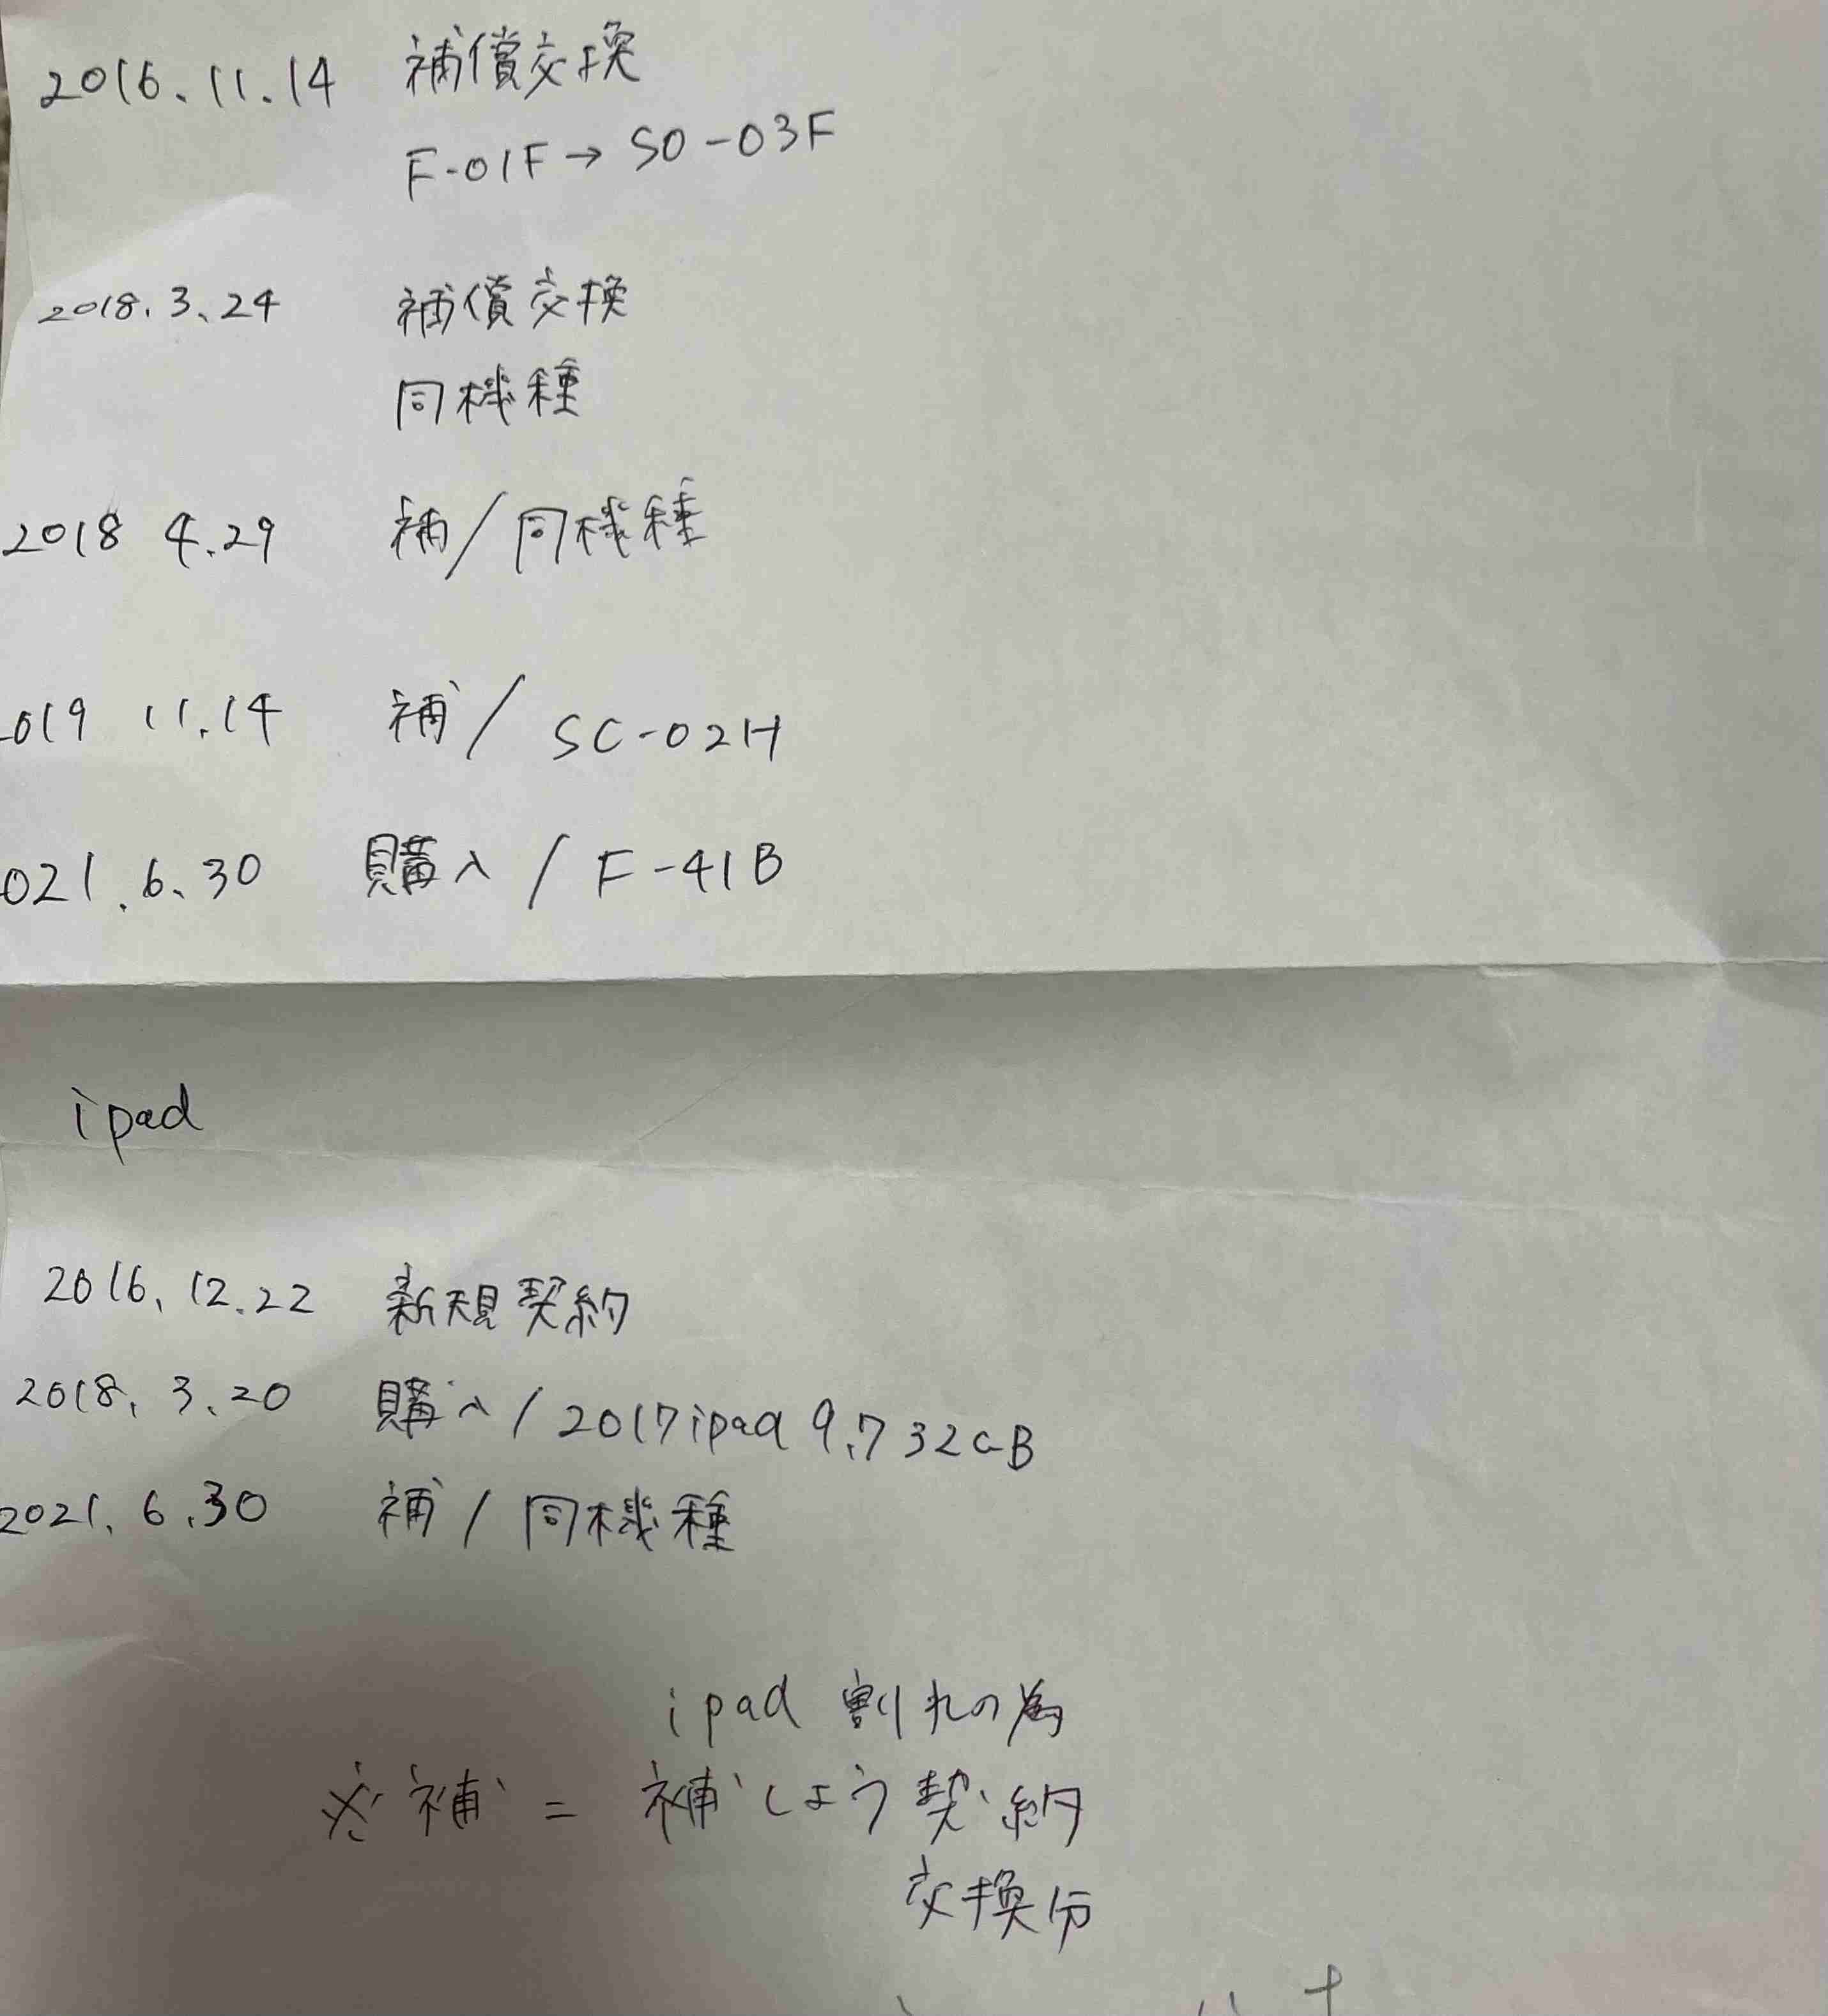 2016.11.14 補償交換
F-01F→SO-03F
2018.3.24 補償交換
同機種
2018 4.29 補/同機種
2019 11.14 補/SC-02H
2021.6.30 購入/F-41B
ipad
2016.12.22 新規契約
2018.3.20 購入/2017ipad 9.7 32GB
2021.6.30 補/同機種
ipad 割れの為
※補=補しょう契約
交換分